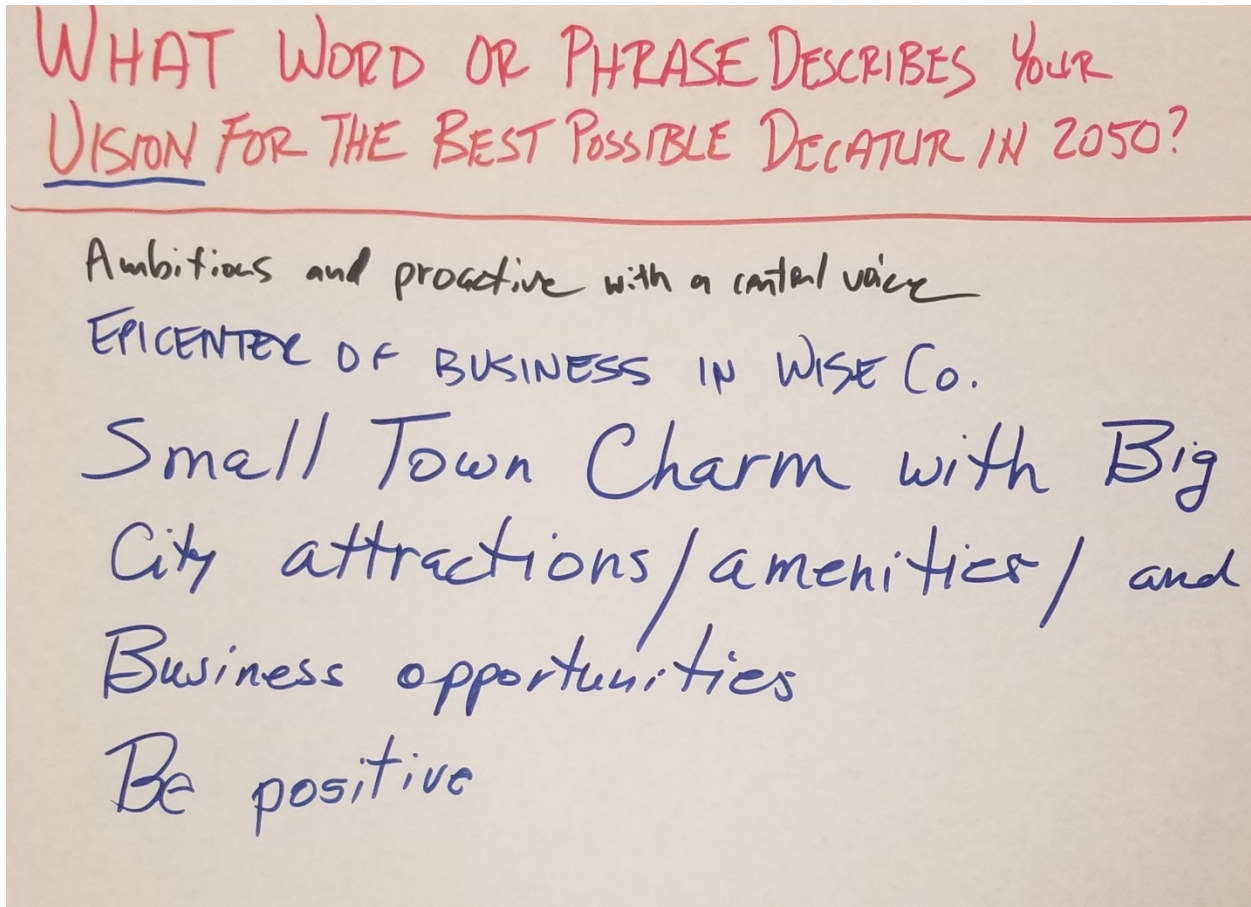 WHAT WORD OR PHRASE DESCRIBES YOUR
VISION FOR THE BEST POSSIBLE DECATUR IN 2050?
Ambitious and proactive with a central voice
EPICENTER OF BUSINESS IN WISE CO.
Small Town Charm with Big
City attractions/amenities/ and
Business opportunities
Be positive